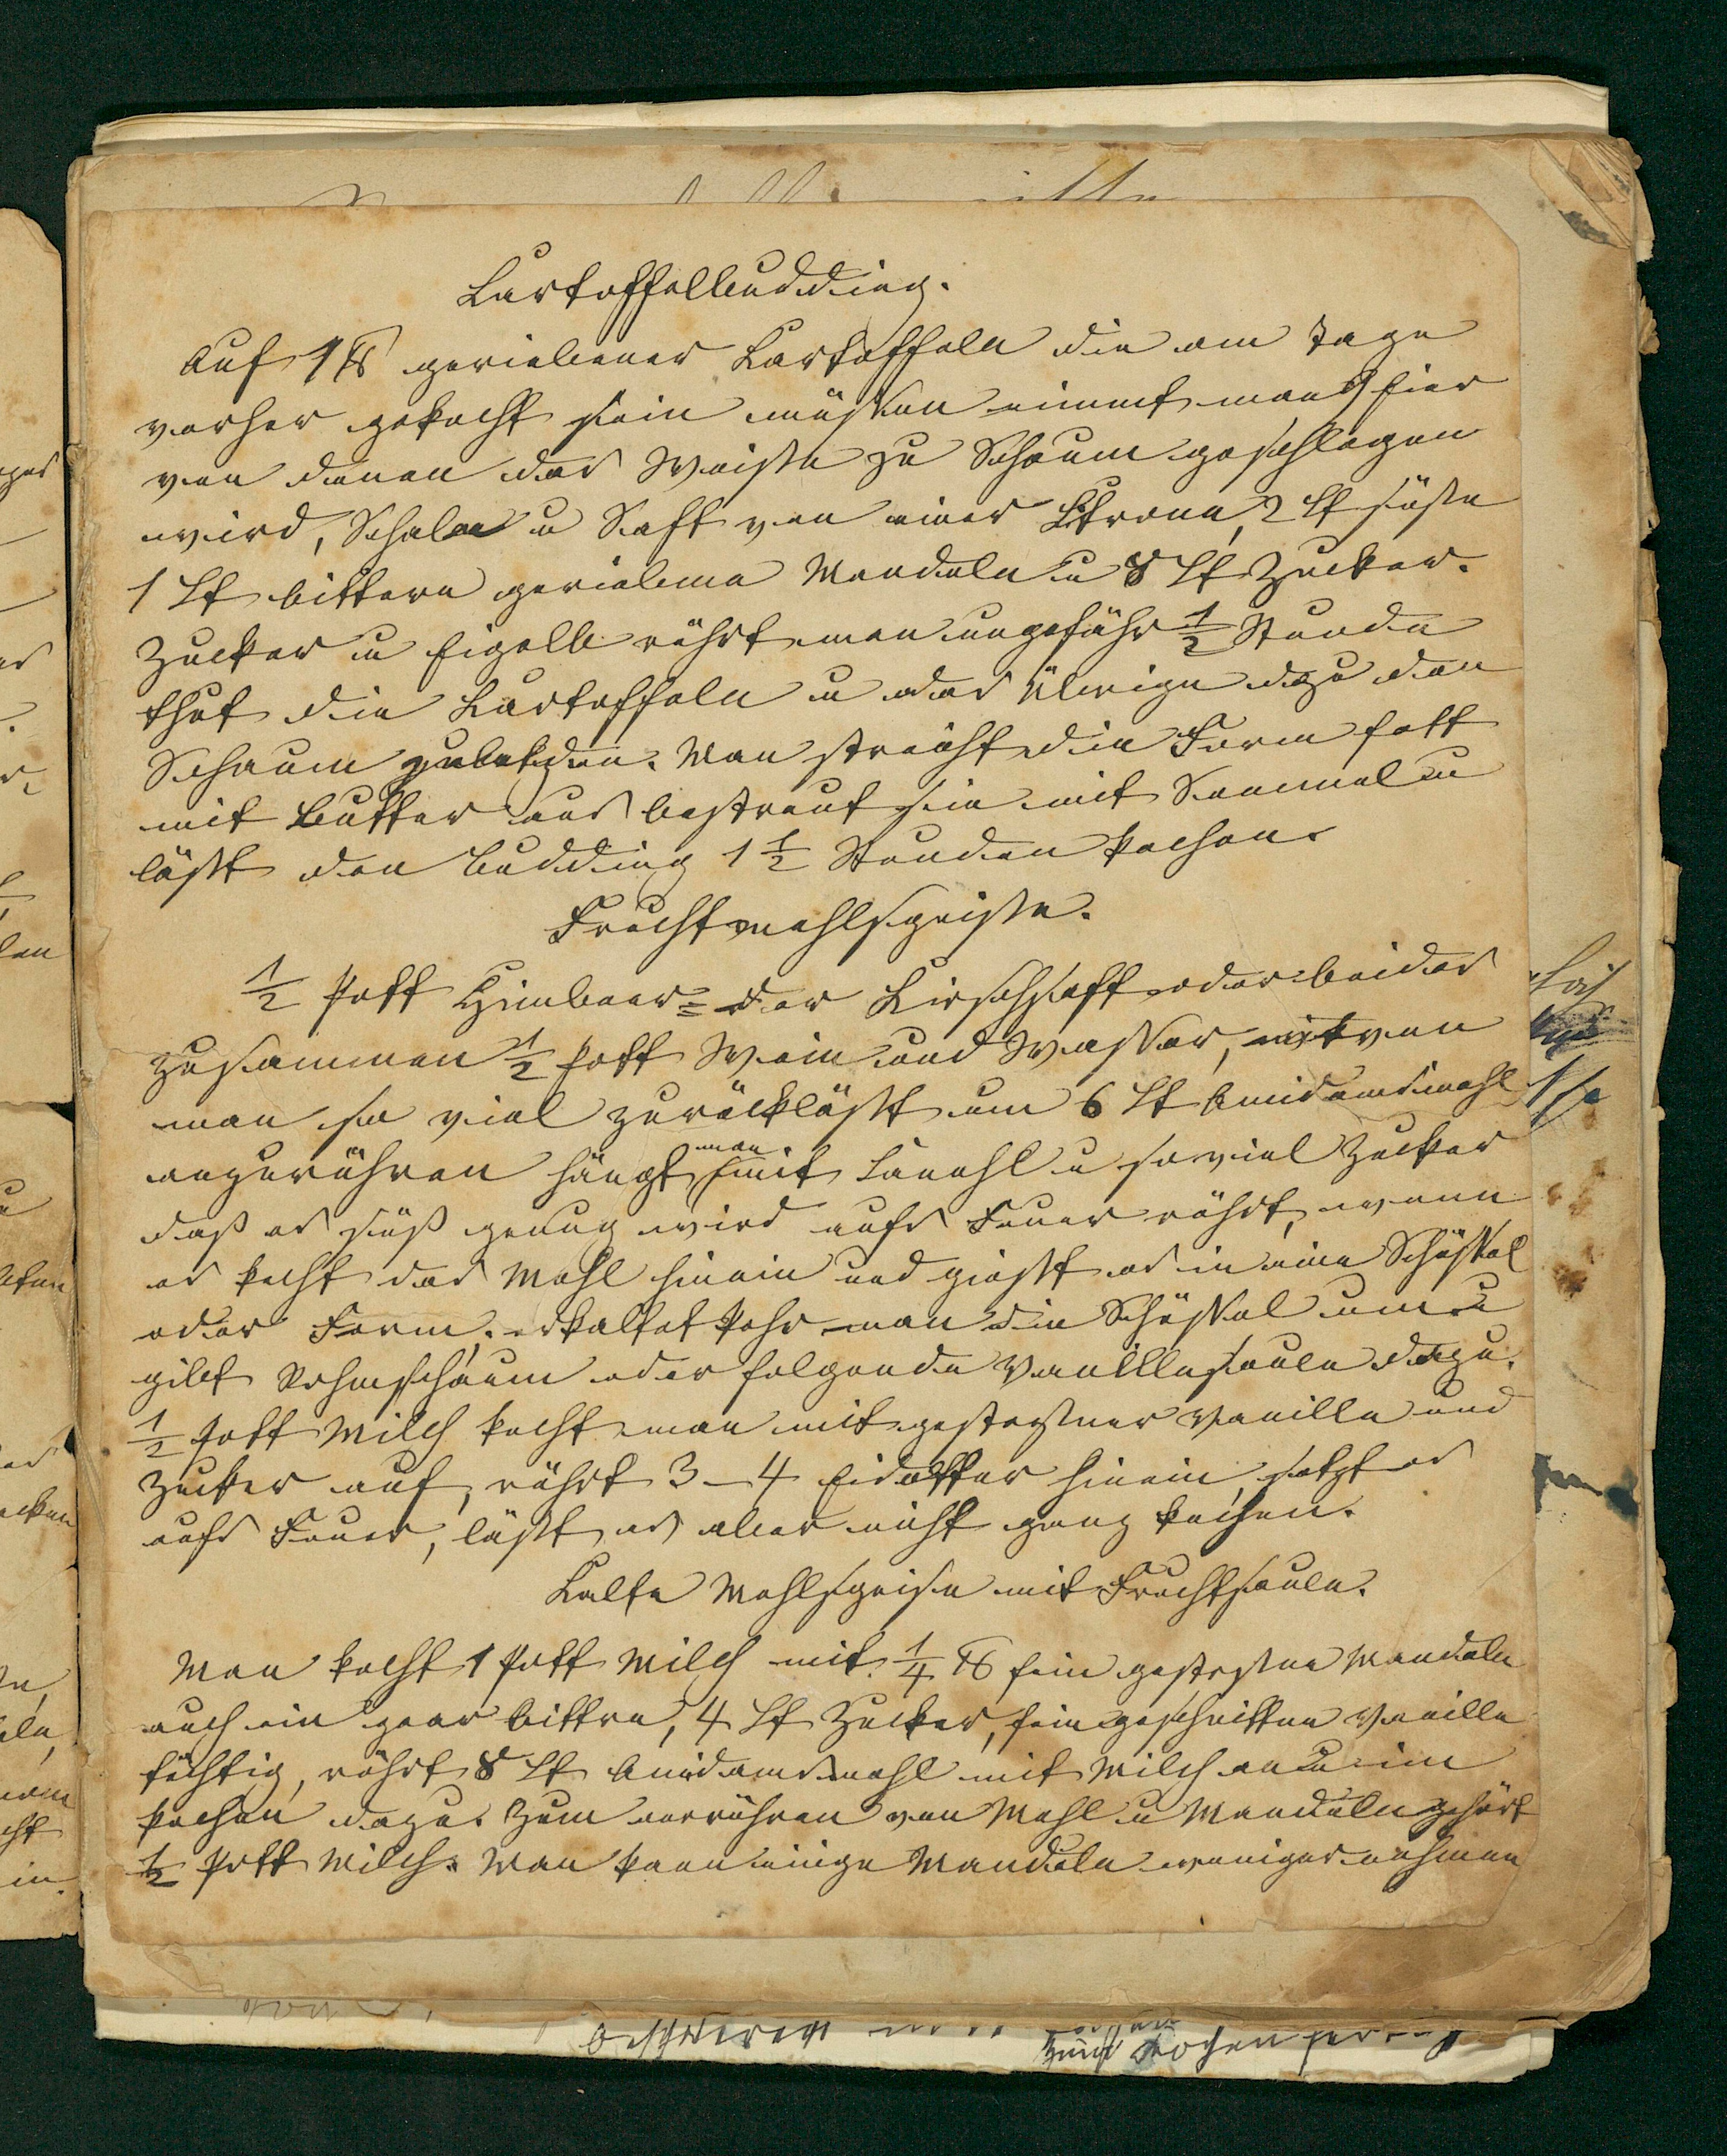 Kartoffelbudding.
Auf 1 ℔ geriebener Kartoffeln die am Tage
vorher gekocht sein müssen nimmt man 9 Eier
von denen das Weiße zu Schaum geschlagen
wird, Schale u Saft von einer Citrone, 2 Lt süße
1 Lt bittere geriebene Mandeln u 8 Lt Zucker.
Zucker u Eigelb rührt man ungefähr 1/2 Stunde
thut die Kartoffeln u das Übrige dazu den
Schaum zuletzt. Man streicht die Form fett
mit Butter aus bestreut sie mit Semmel u
läßt den Budding 1 1/2 Stunden kochen.
Fruchtmehlspeise.
1/2 Pott Himbeer= oder Kirschsaft oder beides
zusammen 1/2 Pott Wein und Wasser, wovon
man so viel zurückläßt um 6 Lt Amidammehl
anzurühren hängt man mit Kaneehl u so viel Zucker
daß es süß genug wird aufs Feuer rührt, wenn
es kocht das Mehl hinein und gießt es in eine Schüssel
oder Form, erkaltet kehrt man die Schüssel um u
gibt Rahmschaum oder folgende Vanillesauce dazu.
1/2 Pott Milch kocht man mit gestoßner Vanille und
Zucker auf, rührt 3–4 Eidotter hinein, setzt es
aufs Feuer, läßt es aber nicht ganz kochen.
Kalte Mehlspeise mit Fruchtsauce.
Man kocht 1 Pott Milch mit 1/4 ℔ fein gestoßne Mandeln
auch ein paar bittre, 4 Lt Zucker, fein geschnitten Vanille
tüchtig, rührt 8 Lt Amidammehl mit Milch an u im
kochen dazu. Zum anrühren von Mehl u Mandeln gehört
1/2 Pott Milch. Man kann einige Mandeln weniger nehmen